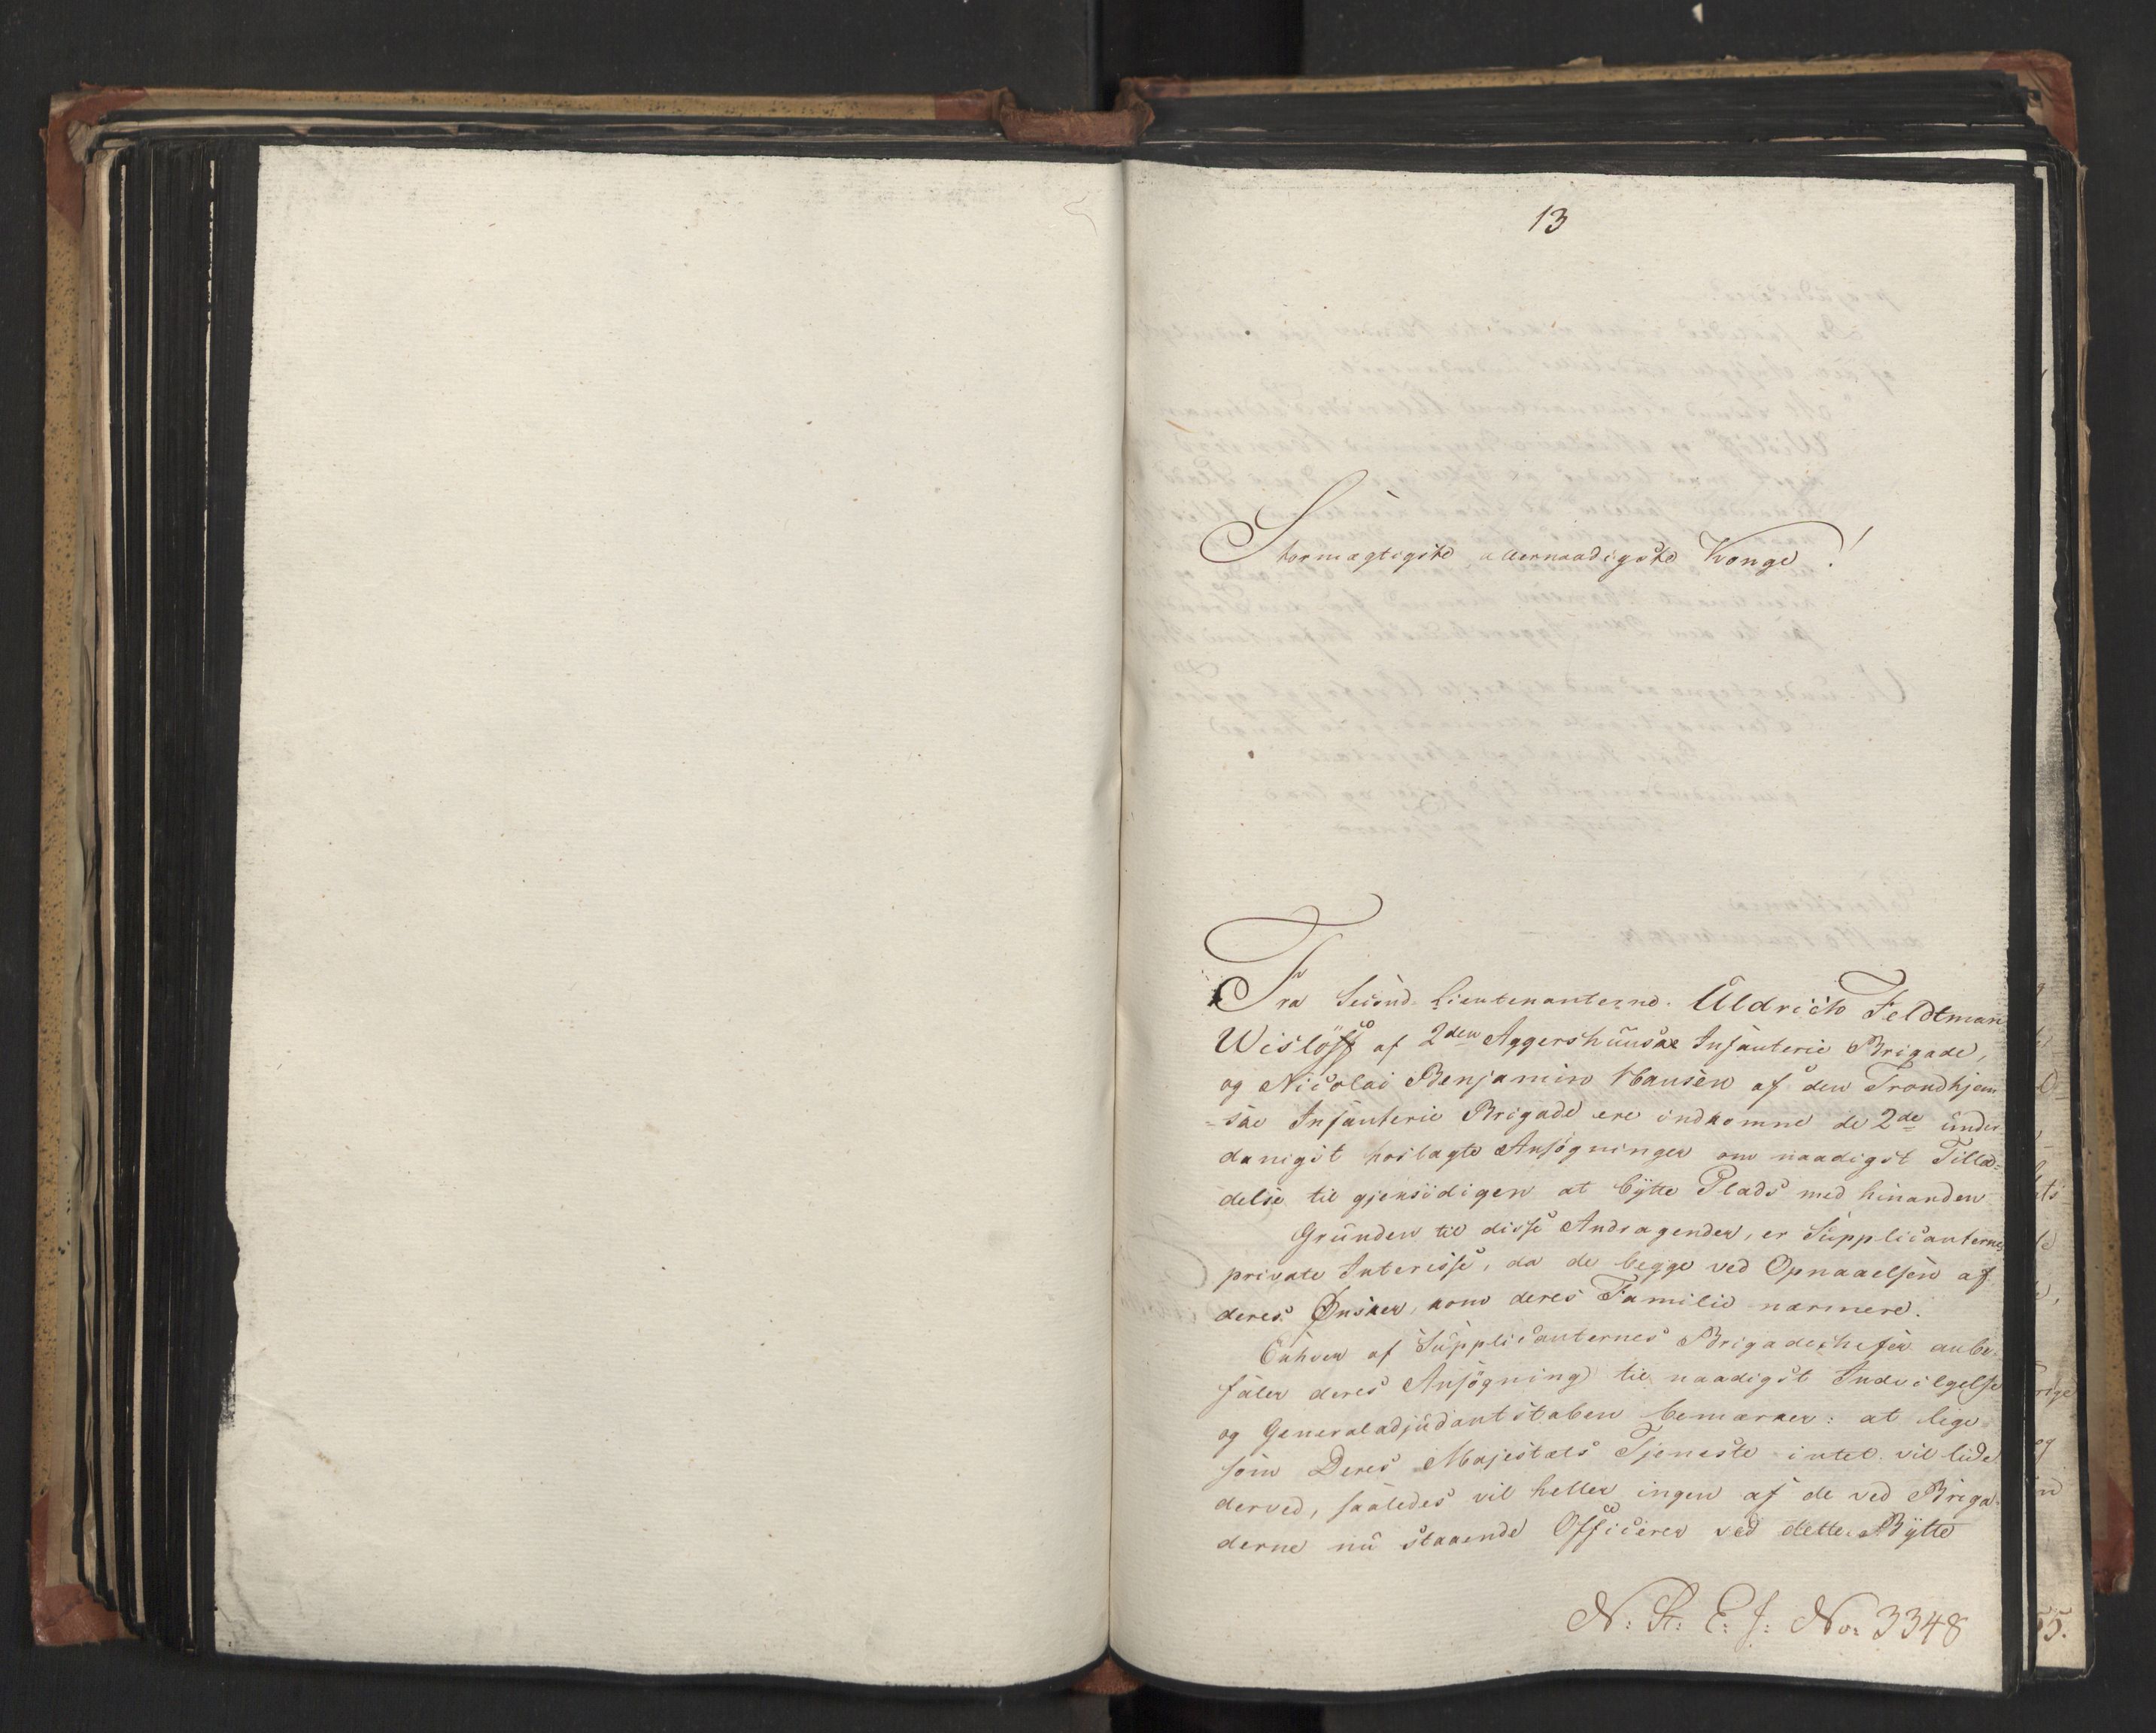 13
Stormægtigste, allernaadigste Konge!
Fra Second-Lieutenanterne Uldrich Feldtman
Wisløff af 2den Aggershuuske Infanterie Brigade,
og Nicolai Benjamin Hansen af den Trondhjem
=ske Infanterie Brigade ere indkomne de 2de under
danigst hoslagte Ansøgninger om naadigst Tilla=
delse til gjensidigen at bytte Plads med hinanden
Grunden til disse Andragender, er Supplicanternes
private Interesse, da de begge ved Opnaaelsen af
deres Ønsker, kom deres Familie nærmere.
Enhver af Supplicanternes Brigadechefer anbe=
faler deres Ansøgning til naadigst Indvilgelse
og Generaladjudantstaben bemærker: at lige
som Deres Majestæts Tjeneste intet vil lide
derved, saaledes vil heller ingen af de ved Briga=
derne nu staaende Officerer ved dette Bytte
N: St: E: f: No: 3348
55.